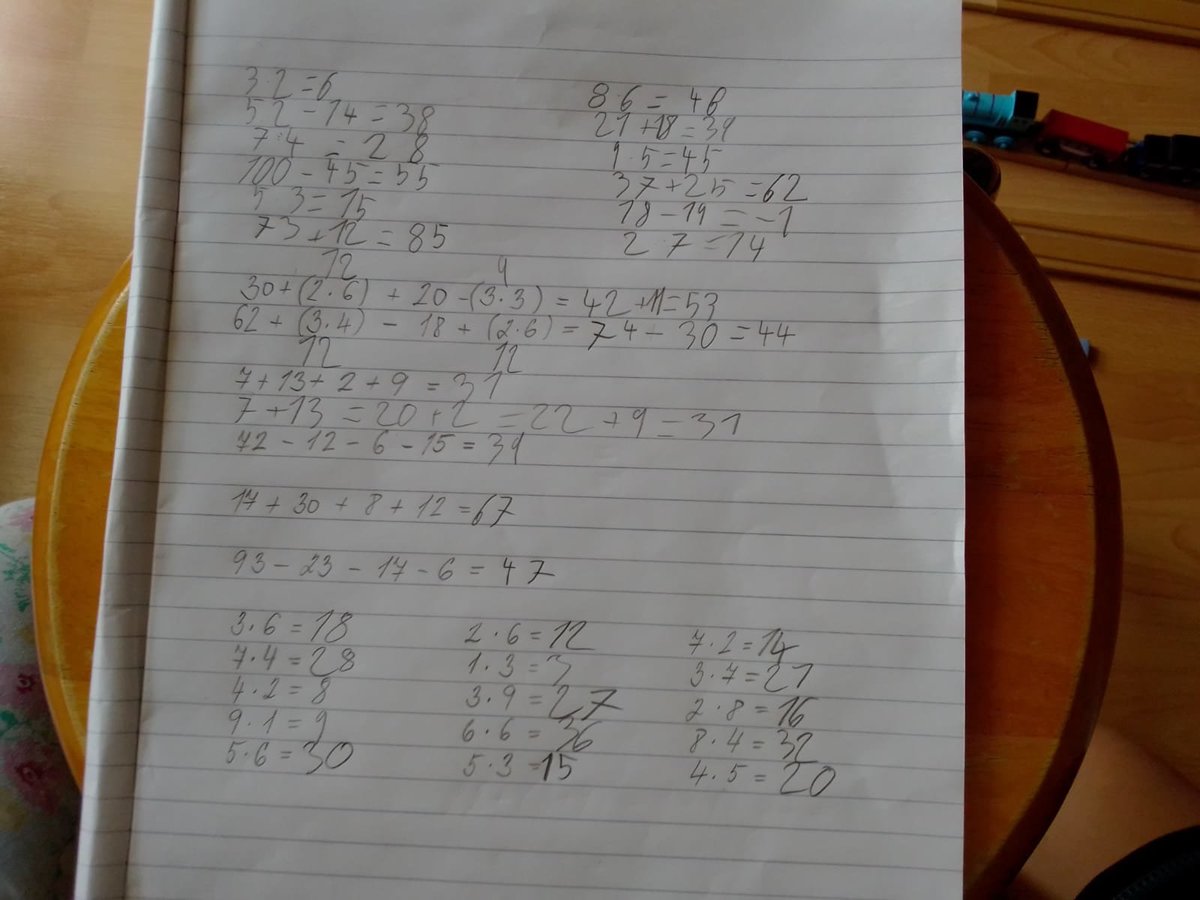 3·2=6
52-14=38
7·4=28
100-45=55
5·3=15
73+12=85
8·6=48
21+18=39
9·5=45
37+25=62
18-19=-1
2·7=14
12 9
30+(2·6)+20-(3·3)=42+11=53
62+(3·4)-18+(2·6)=74-30=44
12 12
7+13+2+9=31
7+13=20+2=22+9=31
72-12-6-15=39
17+30+8+12=67
93-23-17-6=47
3·6=18 2·6=12 7·2=14
7·4=28 1·3=3 3·7=21
4·2=8 3·9=27 2·8=16
9·1=9 6·6=36 8·4=32
5·6=30 5·3=15 4·5=20